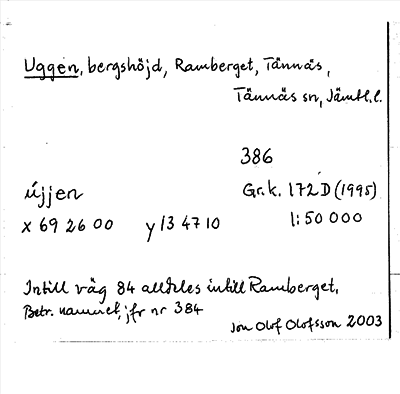 Uggen, bergshöjd, Ramberget, Tännäs,
Tännäs sn, Jämtl.l.
386
újjen
Gr.k. 172D (1995)
x 69 26 00 y 13 47 10
1:50 000
Intill väg 84 alldeles intill Ramberget.
Betr. namnet, jfr nr 384
Jon Olof Olofsson 2003